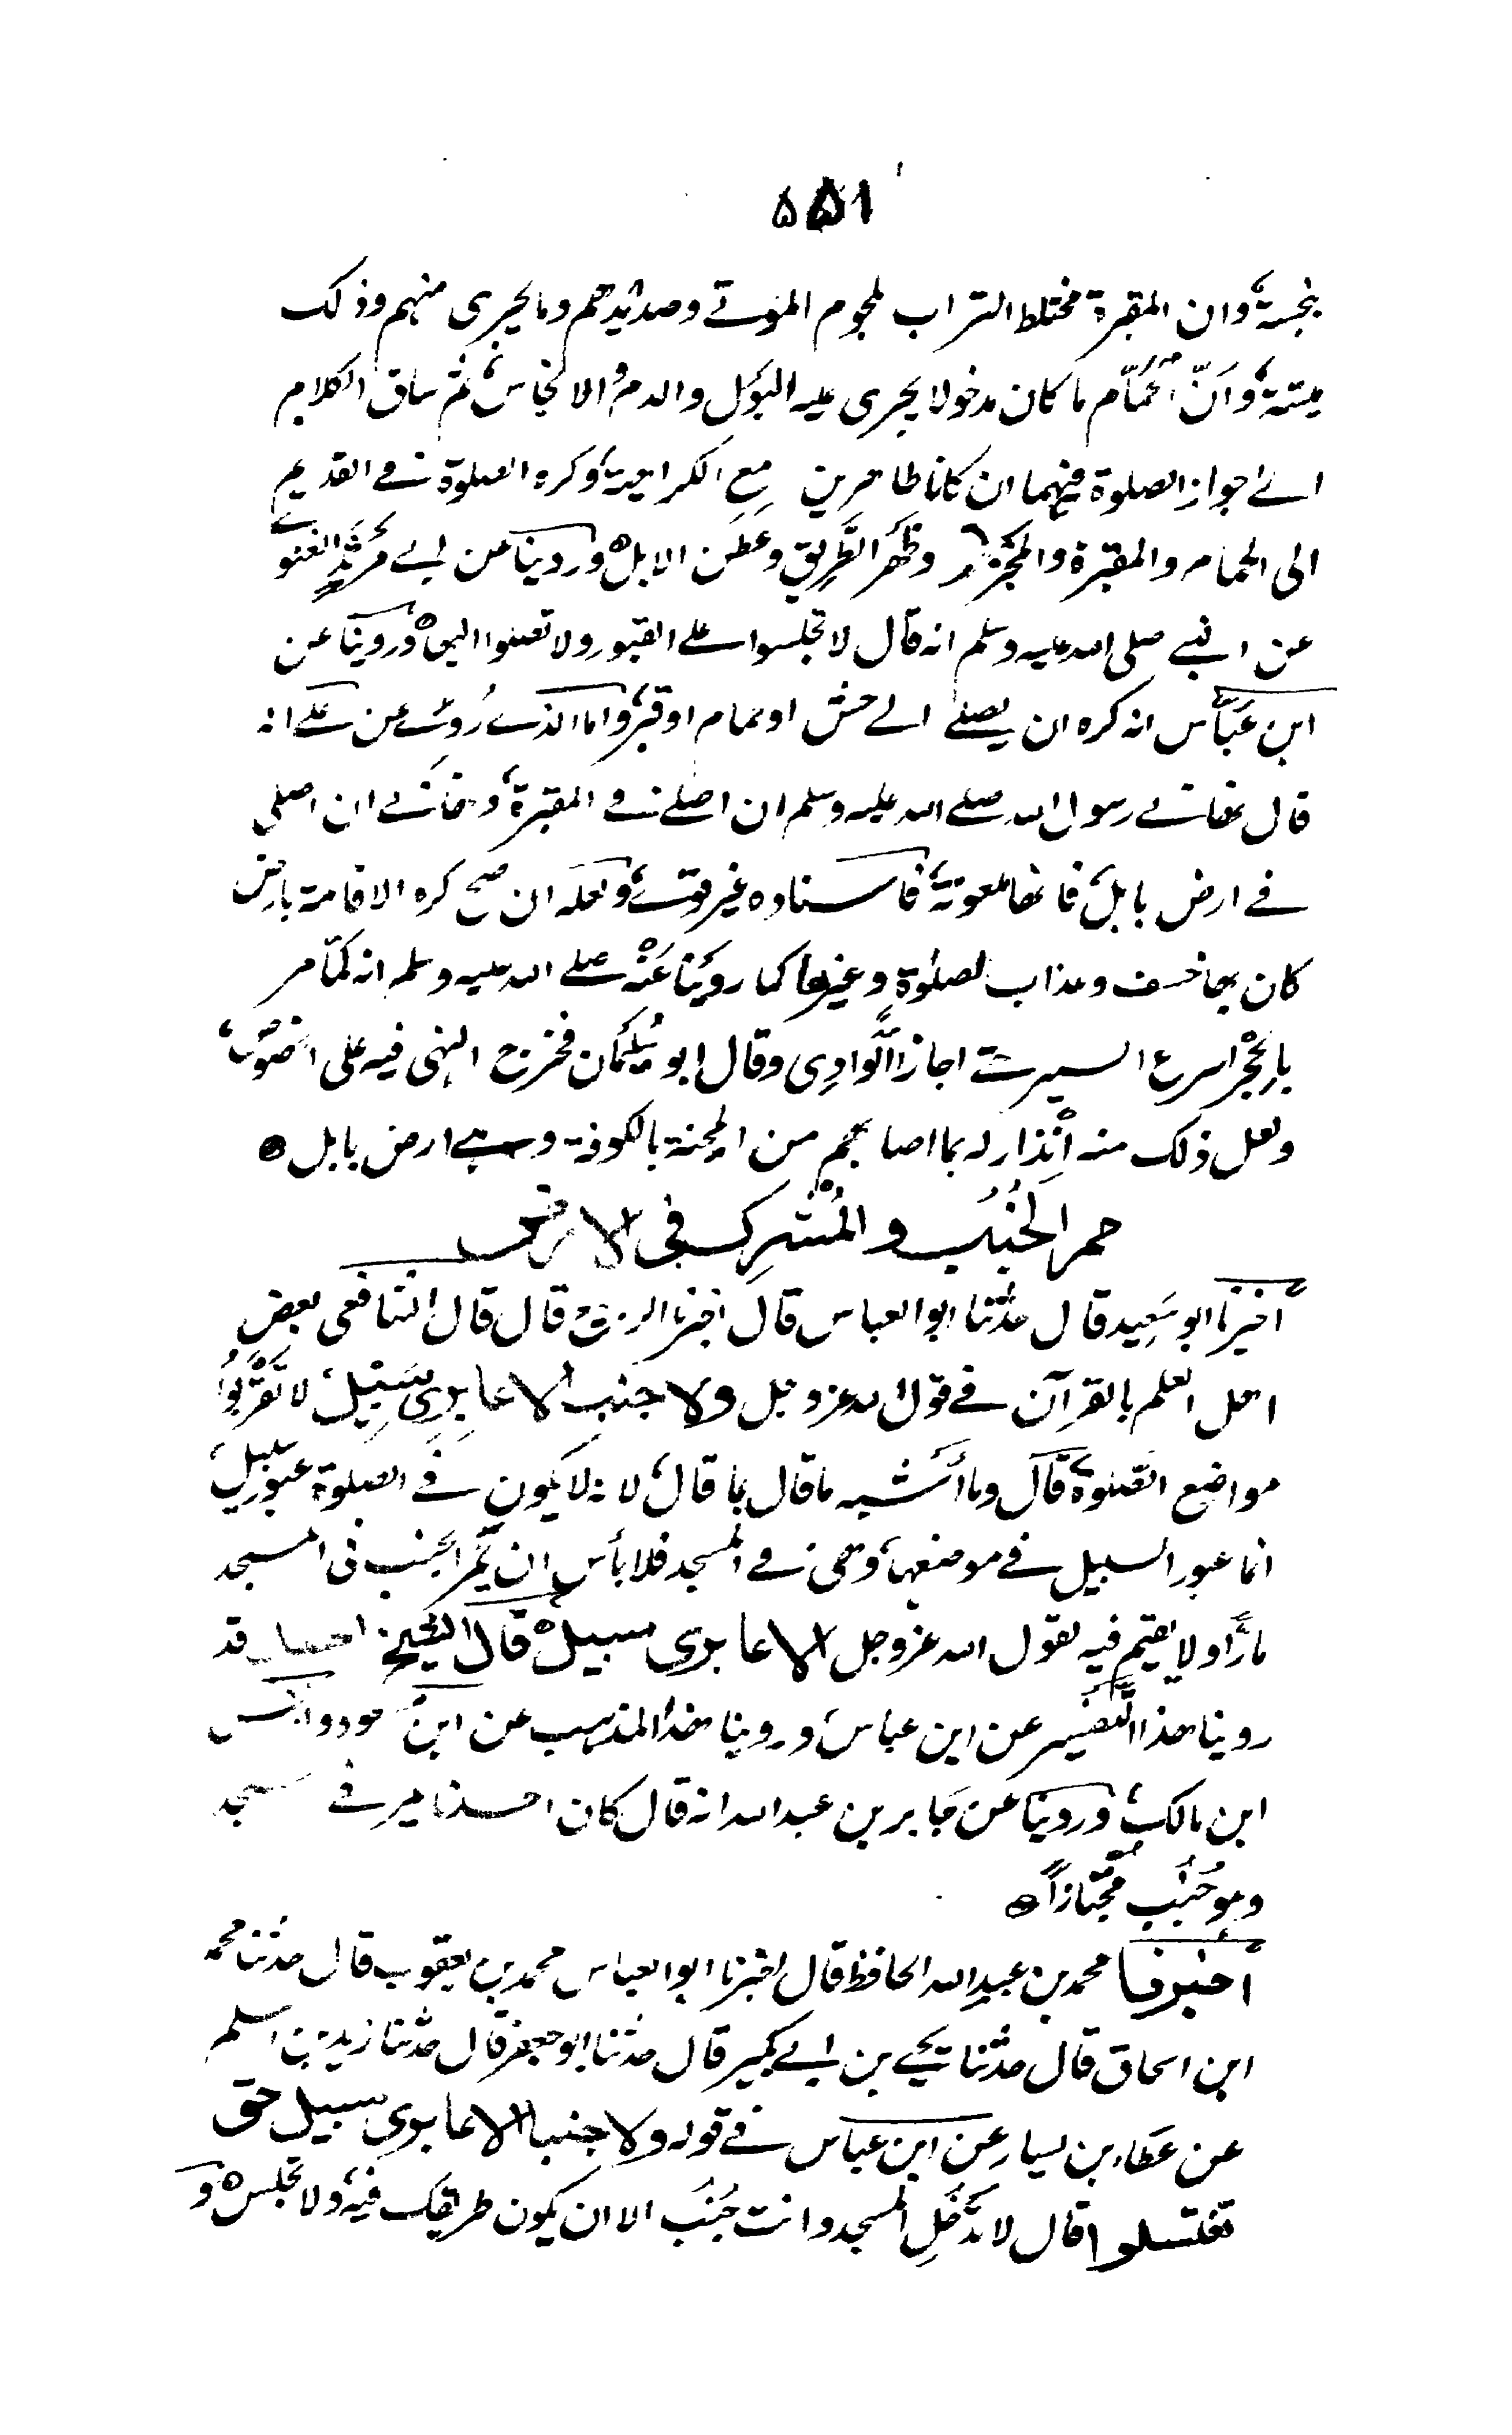 ۵۵۱
بنجسة، وان المقبرة مختلط التراب بلحوم الموتے وصديدهم وما يجرى منهم وذلك
ميتة، وَاَنّ الحمّام ما كان مدخولا يجرى عليه البَول والدم والانجاس، ثم ساق الكلام
الے جواز الصلوة فيهما ان كانا طاهرين مع الكراهية، وكره الصلوة فے القديم
الى الحمام والمقبرة والمجزرة وظَهر الطَّرِيق وعَطَن الابل ٥ وروينا عن ابے مَرثَدٍ الغنوے
عن النبے صلى الله عليه وسلم انه قال لا تجلسوا علے القبور ولا تصلوا اليها ٥ وروينا عن
ابن عبّاس انه كره ان يصلے الے حش او حمام او قبر، واما الذے رُوِے عن علے انه
قال نهانے رسول الله صلے الله عليه وسلم ان اصلے فے المقبرة، ونهانے ان اصلى
فے ارض بابل، فانها ملعونة، فاسناده غير قوے، ولعله ان صح كره الاقامة بارض
كان بها خسف وعذاب لصلوة وغيرها كما روينا عَنْه صلے الله عليه وسلم انه لمّا مر
بالحِجْر اسرع السير حتے اجاز الوادِى وقال ابو سُلَيمَان فخرج النهى فيه على الخصوص،
ولعل ذلك منه اِنْذار له بما اصابهم من المحنة بالكوفة وهے ارض بابل ٥
ممر الجُنُب والمُشْرِك فى الارض
اَخبرنا ابو سَعِيد قال حدثنا ابو العباس قال اخبرنا الربيع قال قال الشافعى بعض
اهل العلم بالقرآن فے قول الله عز وجل ولا جنبا الا عابِرِى سَبِيل، لا تَقْرَبُوا
مواضع الصَّلوة، قال وما أشبه ما قال بما قال، لانه لا يكون فے الصلوة عبور سبيل،
انما عبور السبيل فے موضعها، وهى فے المسجد فلا بأس ان يَمُرّ الجنب فى المسجد
مارًّا ولا يقيم فيه لقول الله عز وجل الا عابرى سبيل ٥ قال الشيخ احمد قد
روينا هذا التَّفسير عن ابن عباس، وروينا هذا المذهب عن ابن مسعود وانس
ابن مالك، وروينا عن جَابر بن عبد الله انه قال كان احدنا يمر فے المسجد
وهو جُنُب مُجْتازًا ٥
اخبرنا محمد بن عبد الله الحافظ قال اخبرنا ابو العباس محمد بن يعقوب قال حدثنا محمد
ابن اسحاق قال حدثنا يحيے بن ابے بكير قال حدثنا ابو جعفر قال حدثنا زيد بن اسلم
عن عَطَاء بن يسار عن ابن عباس فے قوله ولا جنبا الا عابرى سبيل حتى
تغتسلوا قال لا تَدْخُلِ المسجد وانت جُنُبٌ الا ان يكون طريقك فيه، ولا تجلس ٥ و